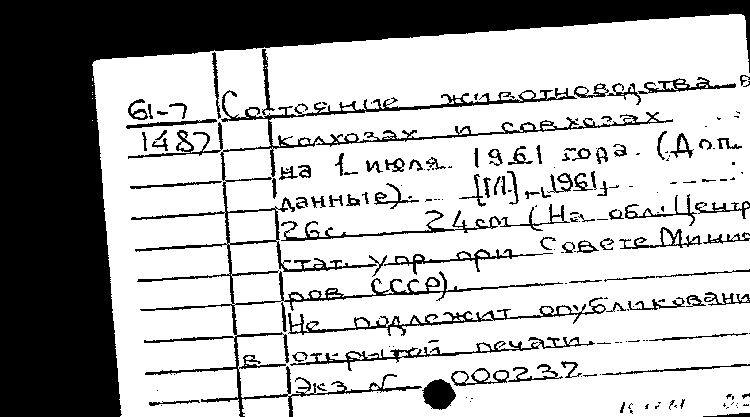 61-7 Состояние животноводства в
1487 колхозах и совхозах
на 1 июля 1961 года. (Доп.
данные). [М], 1961,
26с. 24см (На обл: Центр
стат. упр. при Совете Минис
ров СССР).
Не подлежит опубликовани
в открытой печати.
Экз № 000237